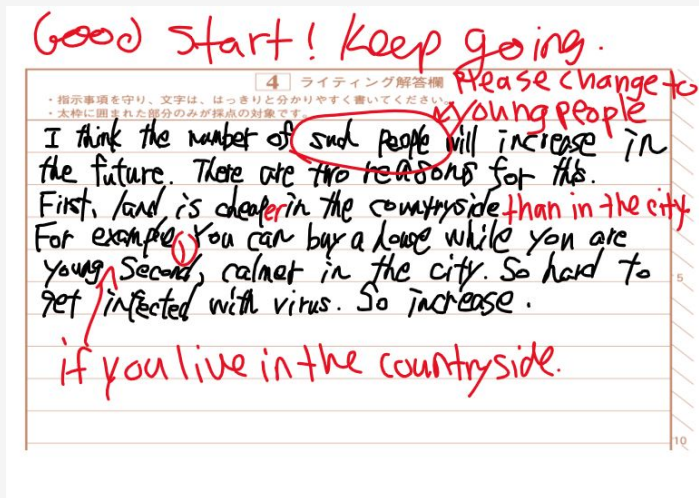 Good start! Keep going.
4 ライティング解答欄
Please change to
・指示事項を守り、文字は、はっきりと分かりやすく書いてください。
young people
・太枠に囲まれた部分のみが採点の対象です。
I think the number of such people will increase in
the future. There are two reasons for this.
First, land is cheaper in the countryside than in the city.
For example, you can buy a house while you are
young. Second, calmer in the city. So hard to
5
get infected with virus. So increase.
if you live in the countryside.
10